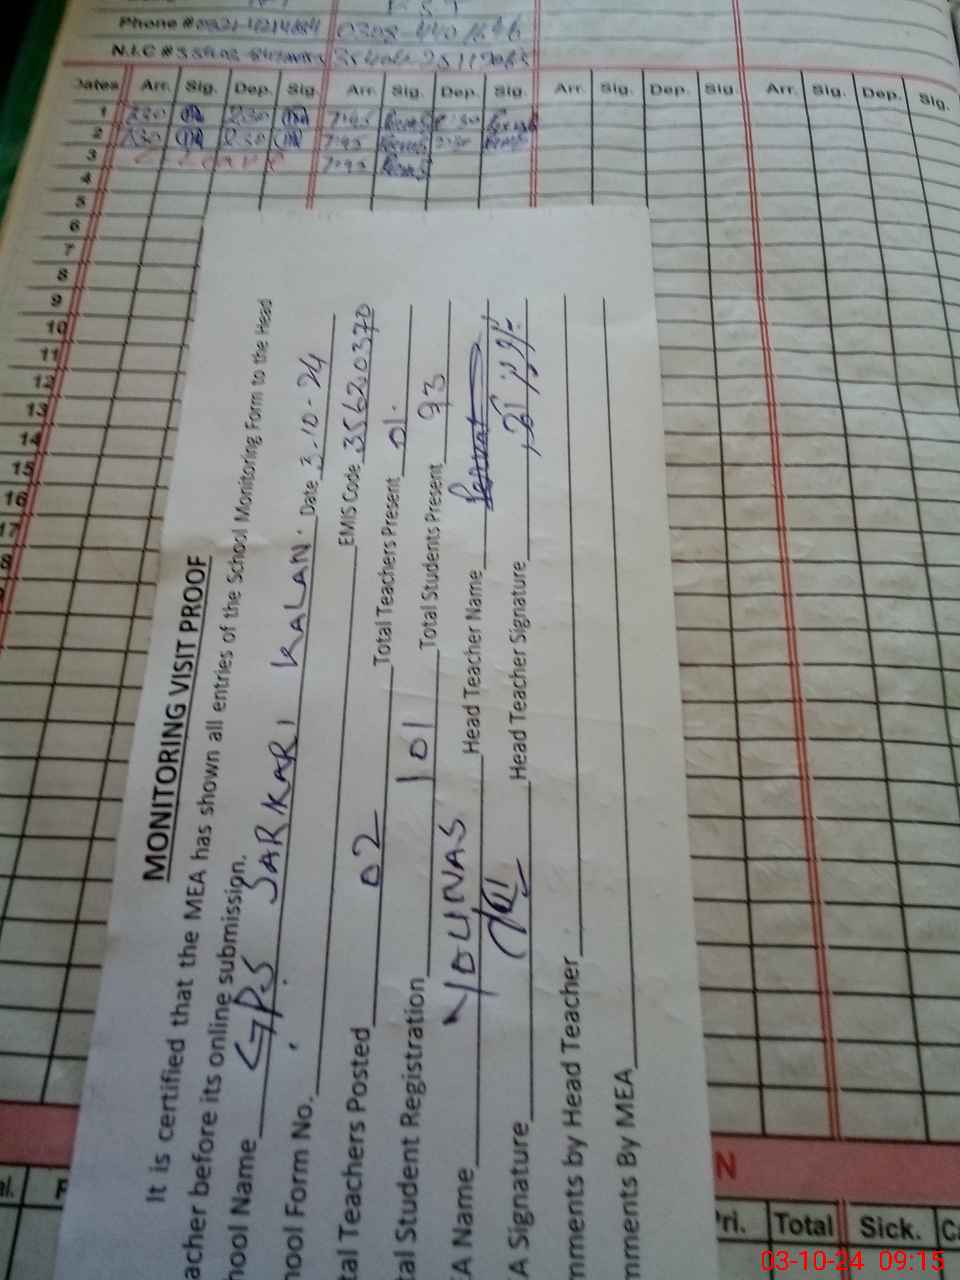 Phone #
N.I.C #
Dates Arr. Sig. Dep. Sig. Arr. Sig. Dep. Sig. Arr. Sig. Dep. Sig. Arr. Sig. Dep. Sig.
1 7:45
2 7:45
3 7:45
4
5
6
7
8
9
10
11
12
13
14
15
16
17
8
MONITORING VISIT PROOF
It is certified that the MEA has shown all entries of the School Monitoring Form to the Head
acher before its online submission.
hool Name GPS SARKARI KALAN. Date 3-10-24
hool Form No. EMIS Code 35620370
tal Teachers Posted 02 Total Teachers Present 01.
tal Student Registration 101 Total Students Present 93
A Name YOUNAS Head Teacher Name
A Signature Head Teacher Signature
mments by Head Teacher
mments By MEA
N
al. ri. Total Sick.
03-10-24 09:15